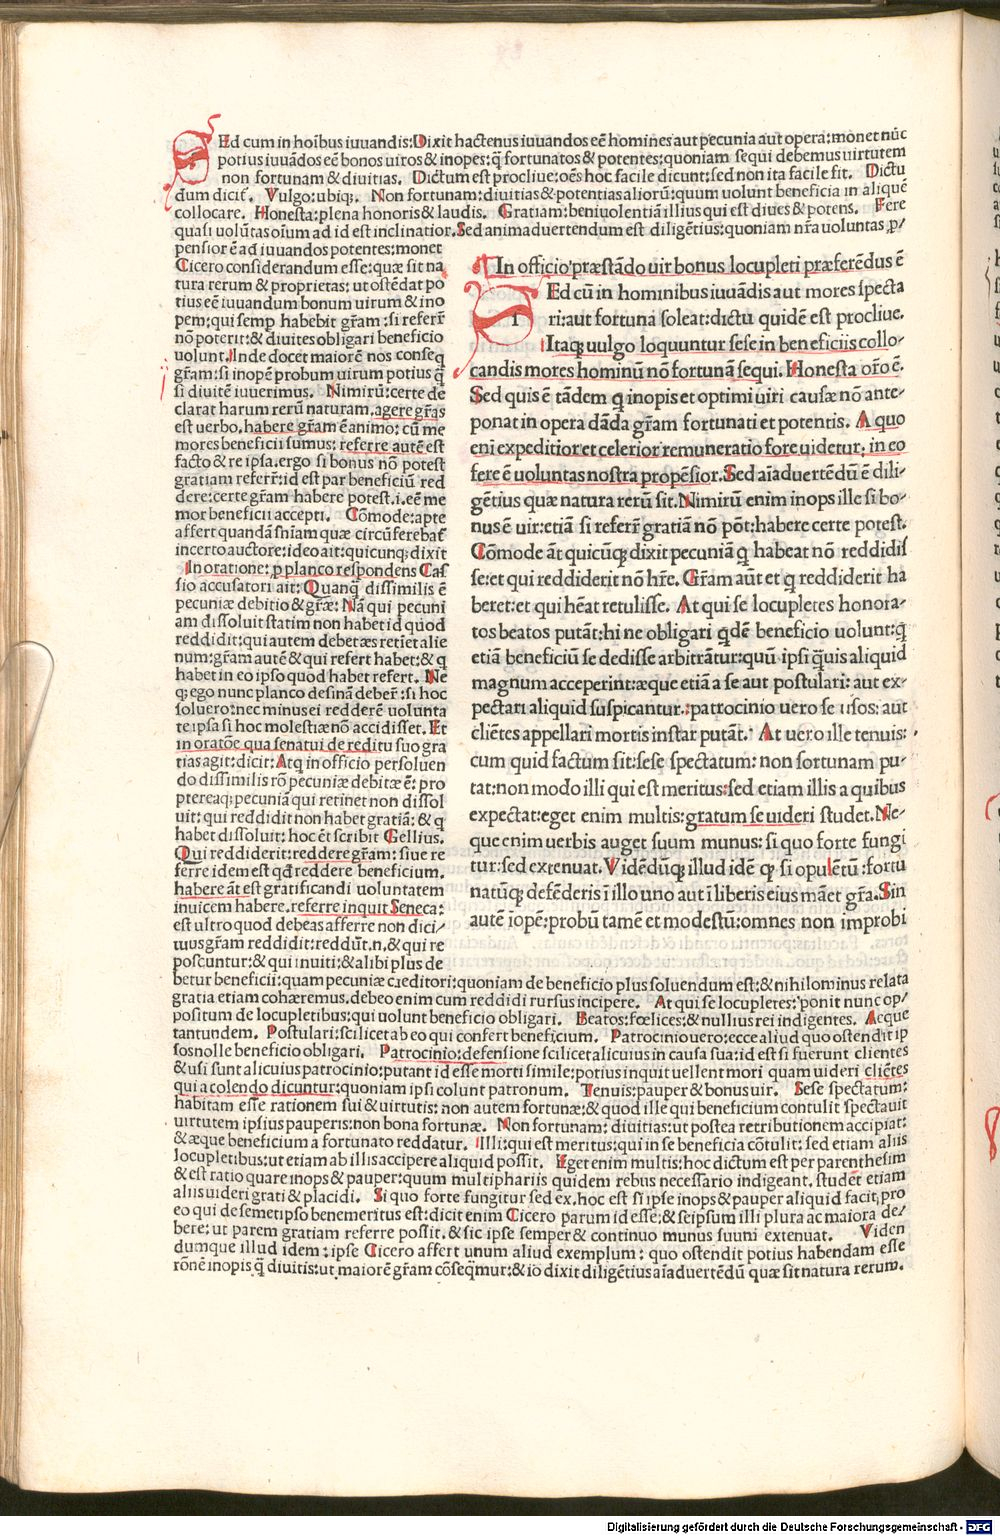 SEd cum in hoībus iuuandis: Dixit hactenus iuuandos eē homines aut pecunia aut opera: monet nūc
potius iuuādos eē bonos uiros & inopes: q̄ fortunatos & potentes: quoniam sequi debemus uirtutem
non fortunam & diuitias. Dictum est procliue: oēs hoc facile dicunt: sed non ita facile fit. Dictu
dum dicit̄. Vulgo: ubiq;. Non fortunam: diuitias & potentias alioru̅: quum uolunt beneficia in aliquē
collocare. Honesta: plena honoris & laudis. Gratiam: beniuolentiā illius qui est diues & potens. Fere
quasi uolūtas oīum ad id est inclinatior. Sed animaduertendum est diligētius: quoniam nr̄a uoluntas ꝓ/
pensior ē ad iuuandos potentes: monet
Cicero considerandum esse: quæ sit na
tura rerum & proprietas: ut ostēdat po
tius eē iuuandum bonum uirum & ino
pem: qui semp habebit gr̄am: si referr̄
nō poterit: & diuites obligari beneficio
uolunt. Inde docet maiorē nos conseq
gr̄am: si inopē probum uirum potius q̄
si diuitē iuuerimus. Nimirū: certe de
clarat harum rerū naturam. agere gr̄as
est uerbo, habere gr̄am ē animo: cū me
mores beneficii sumus: referre autē est
facto & re ipsa. ergo si bonus nō potest
gratiam referr̄: id est par beneficiū red
dere: certe gr̄am habere potest. i. eē me
mor beneficii accepti. Cōmode: apte
affert quandā sn̄iam quæ circūferebat̄
incerto auctore: ideo ait: quicunq; dixit
In oratione: ꝓ planco respondens Cas
sio accusatori ait: Quanq̄ dissimilis ē
pecuniæ debitio & gr̄æ: Nā qui pecuni
am dissoluit statim non habet id quod
reddidit: qui autem debet æs retiet alie
num: gr̄am autē & qui refert habet: & q
habet in eo ipso quod habet refert. Ne
q; ego nunc planco desinā debere̅: si hoc
soluero: nec minus ei redderē uolunta
te ipsa si hoc molestiæ nō accidisset. Et
in oratōe qua senatui de reditu suo gra
tias agit: dicit: Atq in officio persoluen
do dissimilis rō pecuniæ debitæ ē: pro
pterea q; pecuniā qui retinet non dissol
uit: qui reddidit non habet gratiā: & q
habet dissoluit: hoc ēt scribit Gellius.
Qui reddiderit: reddere gr̄am: siue re
ferre idem est qd̄ reddere beneficium.
habere āt est gratificandi uoluntatem
inuicem habere. referre inquit Seneca:
est ultro quod debeas afferre non dici/
mus gr̄am reddidit: reddūt. n. & qui re
poscuntur: & qui inuiti: & alibi plus de
betur beneficii: quam pecuniæ creditori: quoniam de beneficio plus soluendum est: & nihilominus relata
gratia etiam cohæremus. debeo enim cum reddidi rursus incipere. At qui se locupletes: ponit nunc op/
positum de locupletibus: qui uolunt beneficio obligari. Beatos: fœlices: & nullius rei indigentes. Aeque
tantundem. Postulari: scilicet ab eo qui confert beneficium. Patrocinio uero: ecce aliud quo ostendit ip
sos nolle beneficio obligari. Patrocinio: defensione scilicet alicuius in causa sua: id est si fuerunt clientes
& usi sunt alicuius patrocinio: putant id esse morti simile: potius inquit uellent mori quam uideri cliētes
qui a colendo dicuntur: quoniam ipsi colunt patronum. Tenuis: pauper & bonus uir. Sese spectatum:
habitam esse rationem sui & uirtutis: non autem fortunæ: & quod ille qui beneficium contulit spectauit
uirtutem ipsius pauperis: non bona fortunæ. Non fortunam: diuitias: ut postea retributionem accipiat:
& æque beneficium a fortunato reddatur. Illi: qui est meritus: qui in se beneficia cōtulit: sed etiam aliis
locupletibus: ut etiam ab illis accipere aliquid possit. Eget enim multis: hoc dictum est per parenthesim
& est ratio quare inops & pauper: quum multiphariis quidem rebus necessario indigeant, studēt etiam
aliis uideri grati & placidi. Si quo forte fungitur sed ex. hoc est si ipse inops & pauper aliquid facit, pro
eo qui de semetipso benemeritus est: dicit enim Cicero parum id esse: & seipsum illi plura ac maiora de/
bere: ut parem gratiam referre possit. & sic ipse semper & continuo munus suum extenuat. Viden
dumque illud idem: ipse Cicero affert unum aliud exemplum: quo ostendit potius habendam esse
rōnē inopis q̄ diuitis: ut maiorē gr̄am cōseq̄mur: & iō dixit diligētius aīaduertēdū quæ sit natura rerum.
In officio præstādo uir bonus locupleti præferēdus ē
SEd cū in hominibus iuuādis aut mores specta
ri: aut fortuna soleat: dictu quidē est procliue.
Itaq; uulgo loquuntur sese in beneficiis collo/
candis mores hominū nō fortunā sequi. Honesta orō ē.
Sed quis ē tādem q inopis et optimi uiri causæ nō ante/
ponat in opera dāda gr̄am fortunati et potentis. A quo
eni expeditior et celerior remuneratio fore uidetur: in eo
fere ē uoluntas nostra propēsior. Sed aīaduertēdū ē dili/
gētius quæ natura rerū sit. Nimirū enim inops ille si bo/
nus ē uir: etiā si referr̄ gratiā nō pōt: habere certe potest.
Cōmode āt quicūq; dixit pecuniā q habeat nō reddidis
se: et qui reddiderit nō hr̄e. Gr̄am aūt et q reddiderit ha
beret: et qui hēat retulisse. At qui se locupletes honora/
tos beatos putāt: hi ne obligari qdē beneficio uolunt: q̄
etiā beneficiū se dedisse arbitrātur: quū ipsi q̄uis aliquid
magnum acceperint: æque etiā a se aut postulari: aut ex/
pectari aliquid suspicantur. patrocinio uero se usos: aut
cliētes appellari mortis instar putāt. At uero ille tenuis:
cum quid factum sit: sese spectatum: non fortunam pu/
tat: non modo illi qui est meritus: sed etiam illis a quibus
expectat: eget enim multis: gratum se uideri studet. Ne/
que enim uerbis auget suum munus: si quo forte fungi
tur: sed extenuat. Vidēdūq; illud idē q si opulētū: fortu
natūq; defēderis ī illo uno aut ī liberis eius māet gr̄a. Sin
autē īopē: probū tamē et modestū: omnes non improbi
Digitalisierung gefördert durch die Deutsche Forschungsgemeinschaft - DFG